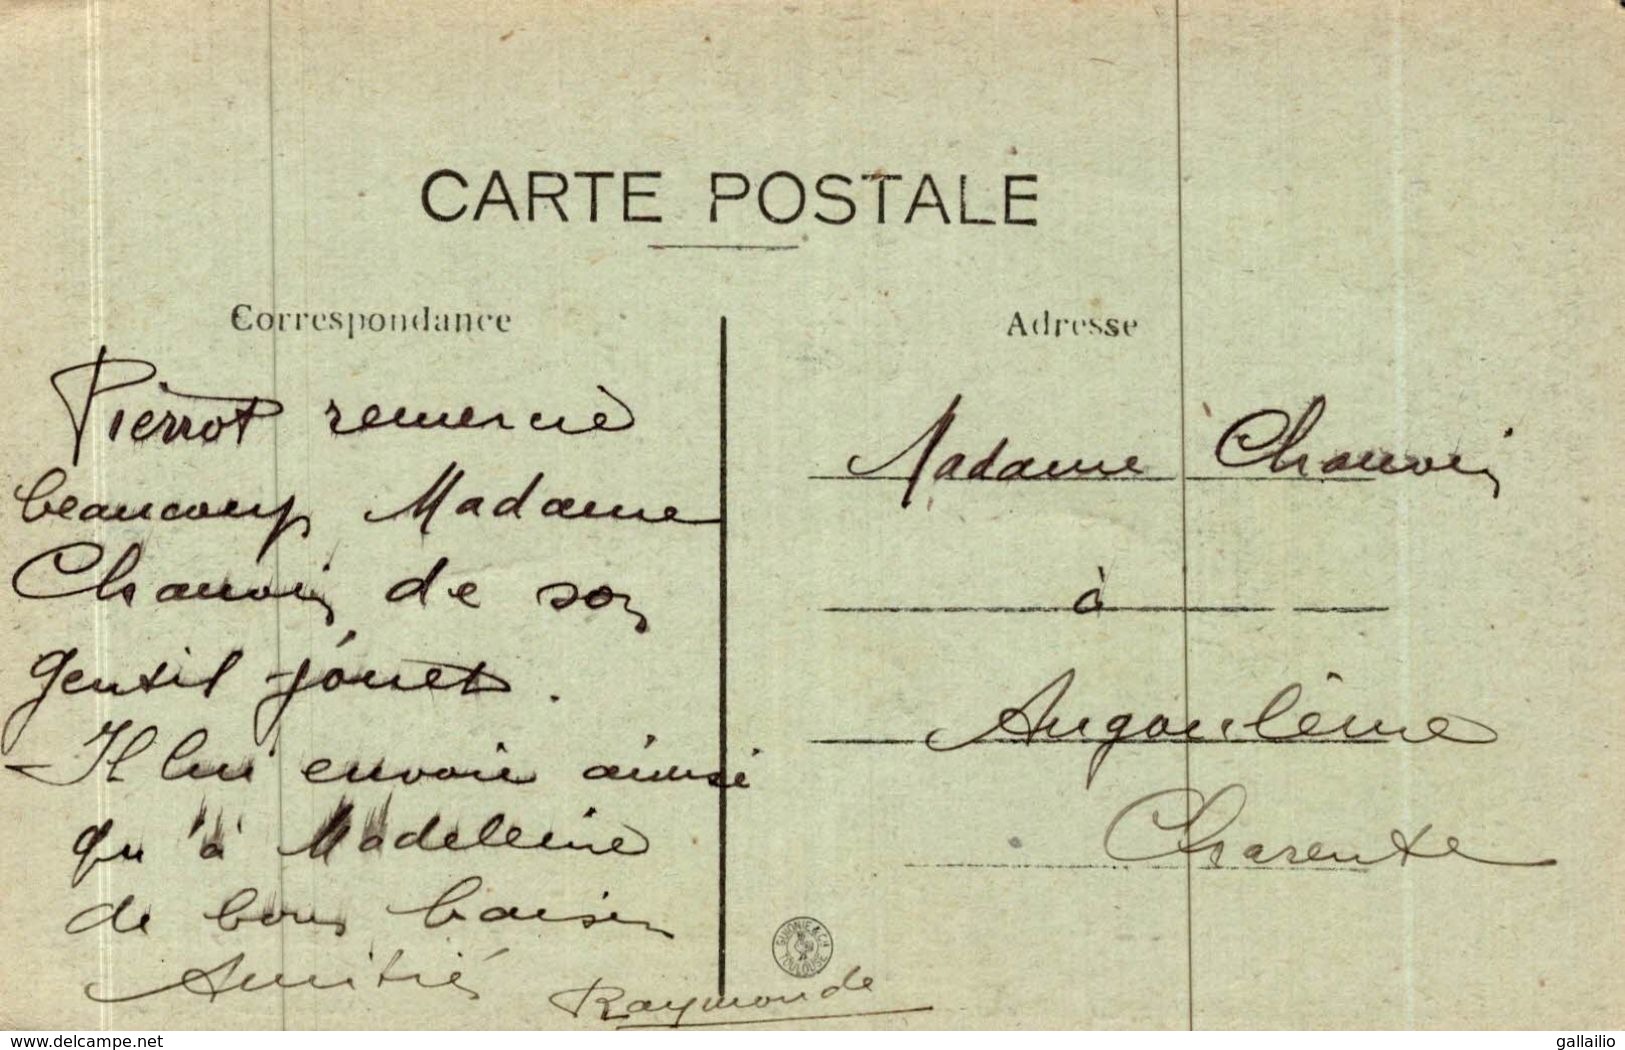 CARTE POSTALE
Correspondance
Adresse
Pierrot remercie
beaucoup Madame
Chauvin de son
gentil jouet.
Il lui envoie ainsi
qu'à Madeleine
de bons baisers
Amitiés
Raymonde
Madame Chauvin
à
Angoulême
Charente
TOULOUSE
delcampe.net
gallailio